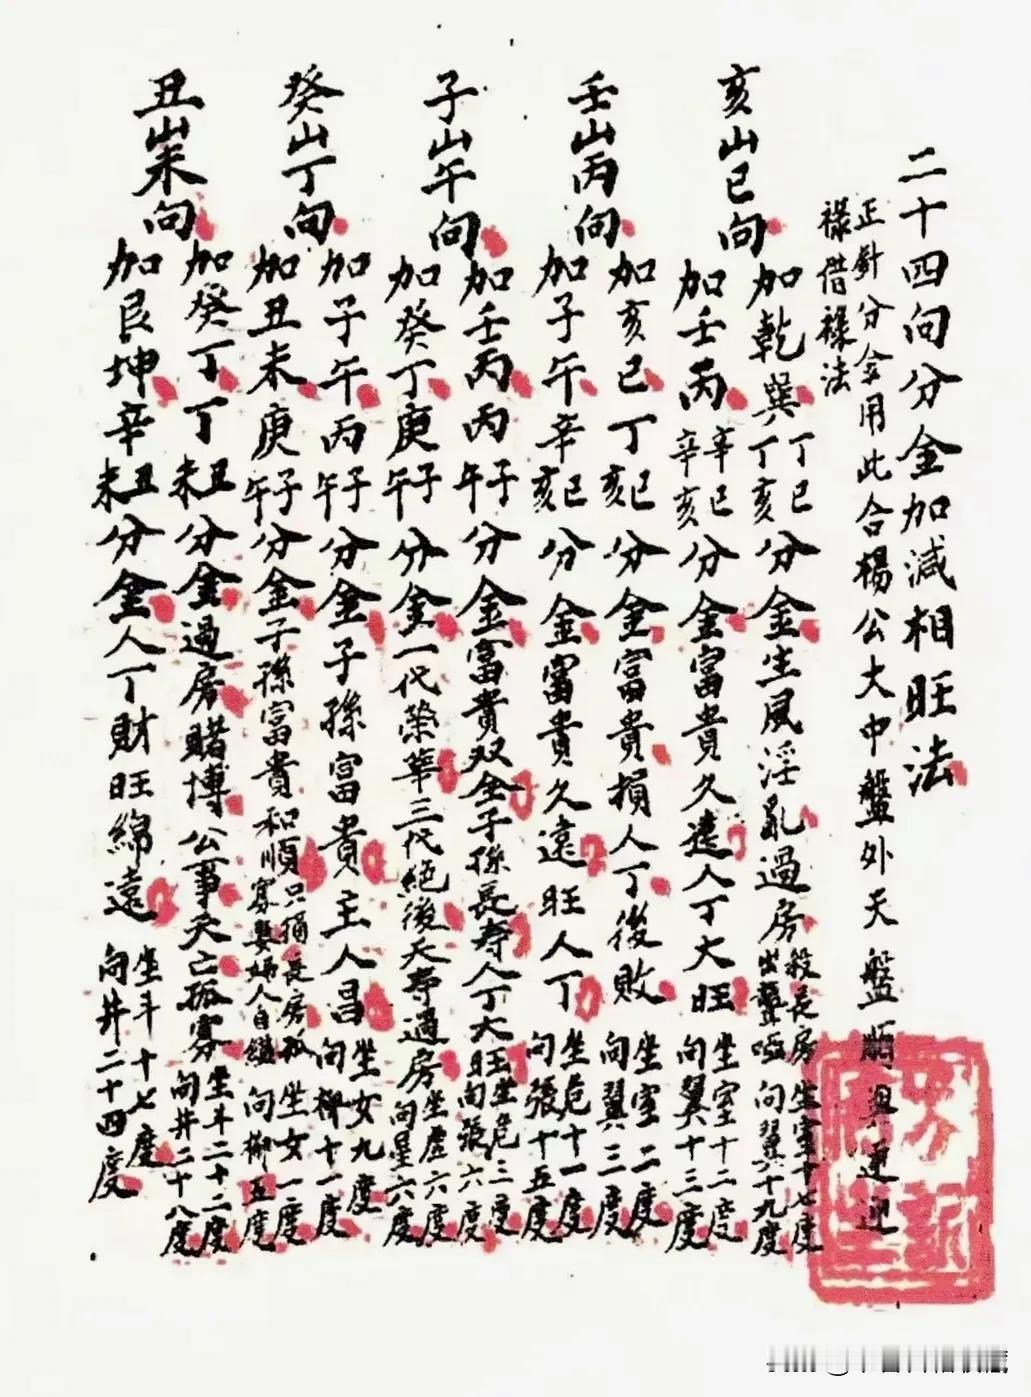 二十四向分金加減相旺法
正針分金用此合楊公大中盤外天盤順
祿借祿法
亥山巳向
加乾巽丁巳丁亥分金生風淫亂過房殺長房出聾啞坐室十七度向翼十九度
加壬丙辛巳辛亥分金富貴久遠人丁大旺坐室十二度向翼十三度
壬山丙向
加亥巳丁巳亥分金富貴損人丁後敗坐室二度向翼三度
加子午辛巳亥分金富貴久遠旺人丁坐危十一度向張十五度
子山午向
加壬丙丙子午分金富貴双全子孫長寿人丁大旺坐危三度向張六度
加癸丁庚子午分金一代榮華三代絕後夭寿過房坐虛六度向星六度
癸山丁向
加子午丙子午分金子孫富貴主人昌坐女九度向柳十一度
加丑未庚子午分金子孫富貴和順只損長房孤寡娶婦人自縊坐女一度向柳五度
丑山未向
加癸丁丁丑未分金過房賭博公事夭亡孤寡坐斗二十二度向井二十八度
加艮坤辛丑未分金人丁財旺綿遠坐斗十七度向井二十四度